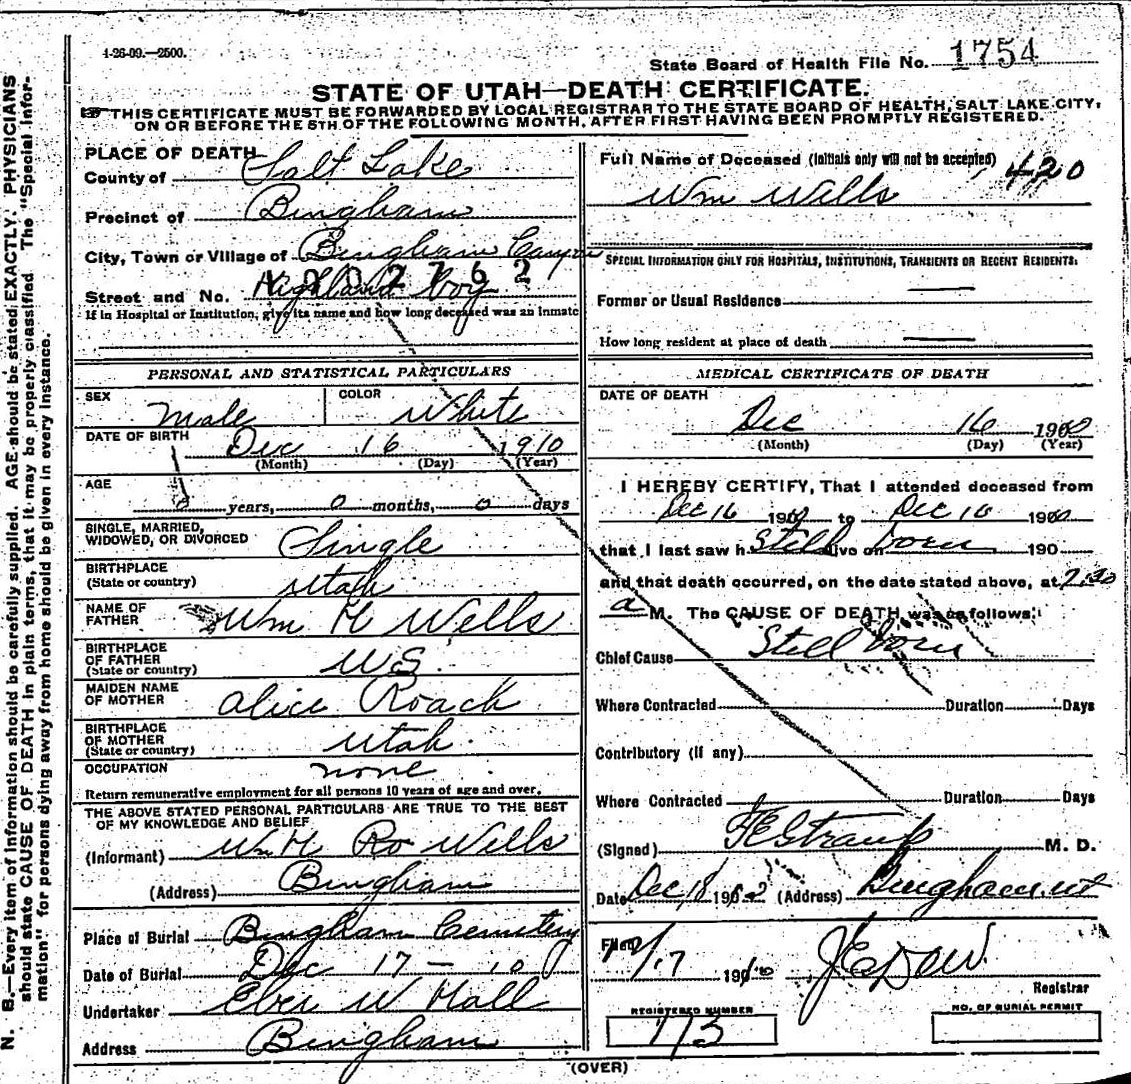 1-26-09.—2500.
State Board of Health File No. 1754
STATE OF UTAH—DEATH CERTIFICATE.
THIS CERTIFICATE MUST BE FORWARDED BY LOCAL REGISTRAR TO THE STATE BOARD OF HEALTH, SALT LAKE CITY,
ON OR BEFORE THE 5TH OF THE FOLLOWING MONTH, AFTER FIRST HAVING BEEN PROMPTLY REGISTERED.
N. B.—Every item of information should be carefully supplied. AGE should be stated EXACTLY. PHYSICIANS
should state CAUSE OF DEATH in plain terms, that it may be properly classified. The "Special Infor-
mation" for persons dying away from home should be given in every instance.
PLACE OF DEATH
County of Salt Lake
Precinct of Bingham
City, Town or Village of Bingham Canyon
Street and No. Highland Boy
If in Hospital or Institution, give its name and how long deceased was an inmate
PERSONAL AND STATISTICAL PARTICULARS
SEX Male COLOR White
DATE OF BIRTH Dec 16 1910
(Month) (Day) (Year)
AGE
0 years, 0 months, 0 days
SINGLE, MARRIED,
WIDOWED, OR DIVORCED Single
BIRTHPLACE
(State or country) Utah
NAME OF
FATHER Wm H Wells
BIRTHPLACE
OF FATHER
(State or country) U.S.
MAIDEN NAME
OF MOTHER Alice Roach
BIRTHPLACE
OF MOTHER
(State or country) Utah
OCCUPATION none
Return remunerative employment for all persons 10 years of age and over.
THE ABOVE STATED PERSONAL PARTICULARS ARE TRUE TO THE BEST
OF MY KNOWLEDGE AND BELIEF
(Informant) Wm H Ro Wells
(Address) Bingham
Place of Burial Bingham Cemetery
Date of Burial Dec 17 - 10
Undertaker Eber W Hall
Address Bingham
Full Name of Deceased (Initials only will not be accepted) 420
Wm Wells
SPECIAL INFORMATION ONLY FOR HOSPITALS, INSTITUTIONS, TRANSIENTS OR RECENT RESIDENTS:
Former or Usual Residence —
How long resident at place of death —
MEDICAL CERTIFICATE OF DEATH
DATE OF DEATH
Dec 16 190
(Month) (Day) (Year)
I HEREBY CERTIFY, That I attended deceased from
Dec 16 190 to Dec 190
that I last saw h Still alive on born 190
and that death occurred, on the date stated above, at 7.30
a M. The CAUSE OF DEATH was as follows:
Chief Cause Still born
Where Contracted Duration Days
Contributory (if any)
Where Contracted Duration Days
(Signed) F E Straup M. D.
Date Dec 18 190 (Address) Bingham, ut
Filed 12/17 190 J E Dow
Registrar
REGISTERED NUMBER NO. OF BURIAL PERMIT
173
(OVER)